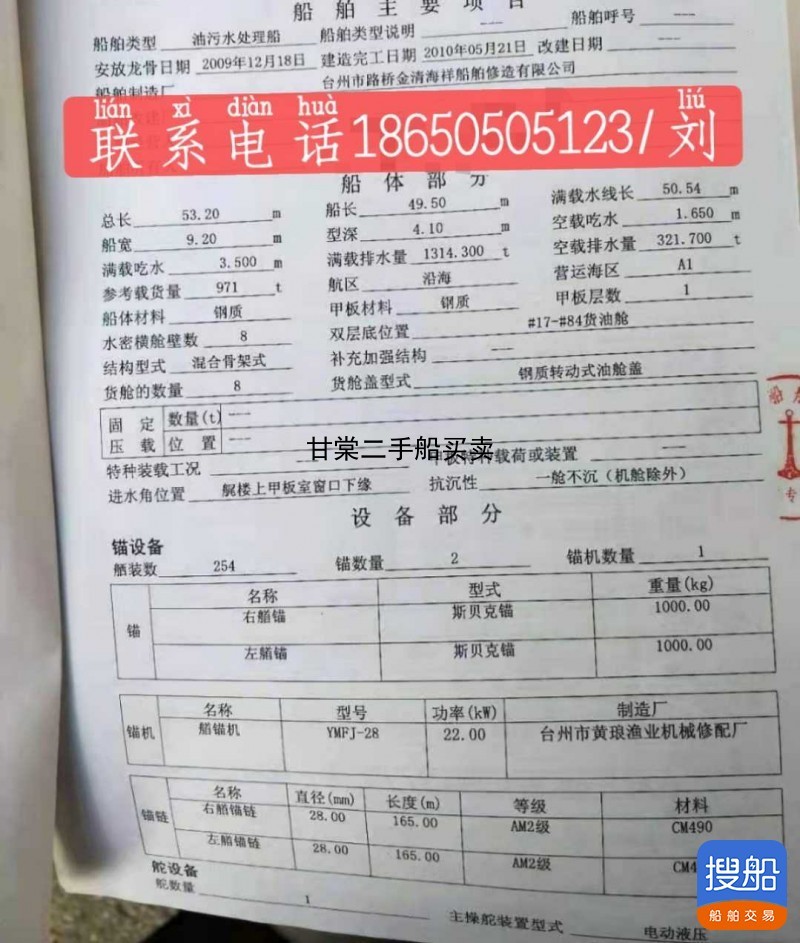 船舶主要项目
船舶类型 油污水处理船 船舶类型说明 --- 船舶呼号 ---
安放龙骨日期 2009年12月18日 建造完工日期 2010年05月21日 改建日期 ---
船舶制造厂 台州市路桥金清海祥船舶修造有限公司
lián xì diàn huà liú
联系电话18650505123/刘
船体部分
总长 53.20 m 船长 49.50 m 满载水线长 50.54 m
船宽 9.20 m 型深 4.10 m 空载吃水 1.650 m
满载吃水 3.500 m 满载排水量 1314.300 t 空载排水量 321.700 t
参考载货量 971 t 航区 沿海 营运海区 A1
船体材料 钢质 甲板材料 钢质 甲板层数 1
水密横舱壁数 8 双层底位置 #17-#84货油舱
结构型式 混合骨架式 补充加强结构 ---
货舱的数量 8 货舱盖型式 钢质转动式油舱盖
固定 数量(t) ---
压载 位置 ---
甘棠二手船买卖
特种装载工况 甲板特种载荷或装置 ---
进水角位置 艉楼上甲板室窗口下缘 抗沉性 一舱不沉（机舱除外）
设备部分
锚设备
舾装数 254 锚数量 2 锚机数量 1
锚 名称 型式 重量(kg)
右艏锚 斯贝克锚 1000.00
左艏锚 斯贝克锚 1000.00
锚机 名称 型号 功率(kW) 制造厂
艏锚机 YMFJ-28 22.00 台州市黄琅渔业机械修配厂
锚链 名称 直径(mm) 长度(m) 等级 材料
右艏锚链 28.00 165.00 AM2级 CM490
左艏锚链 28.00 165.00 AM2级 CM4
舵设备
舵数量 1 主操舵装置型式 电动液压
搜船
船舶交易